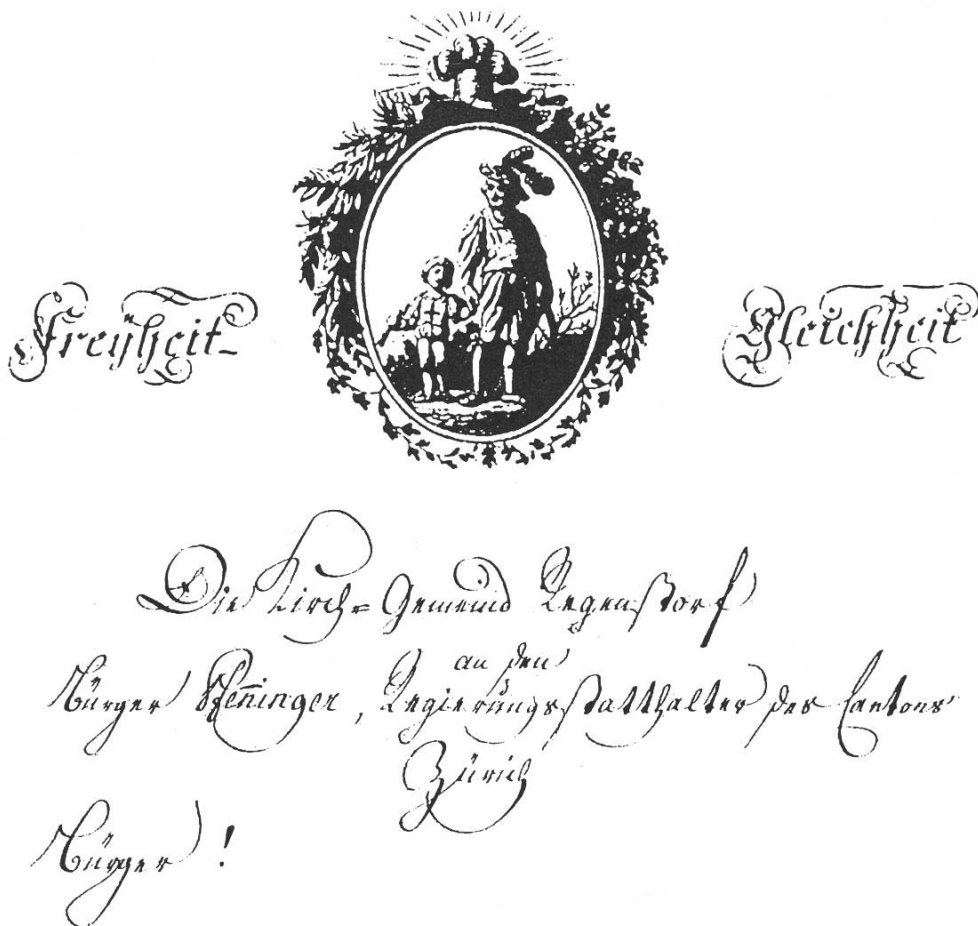 Freÿheit-
Gleichheit
Die Kirch= Gemeind Regenstorf
an den
Bürger Pfeninger, Regierungsstatthalter des Cantons
Zürich
Bürger!